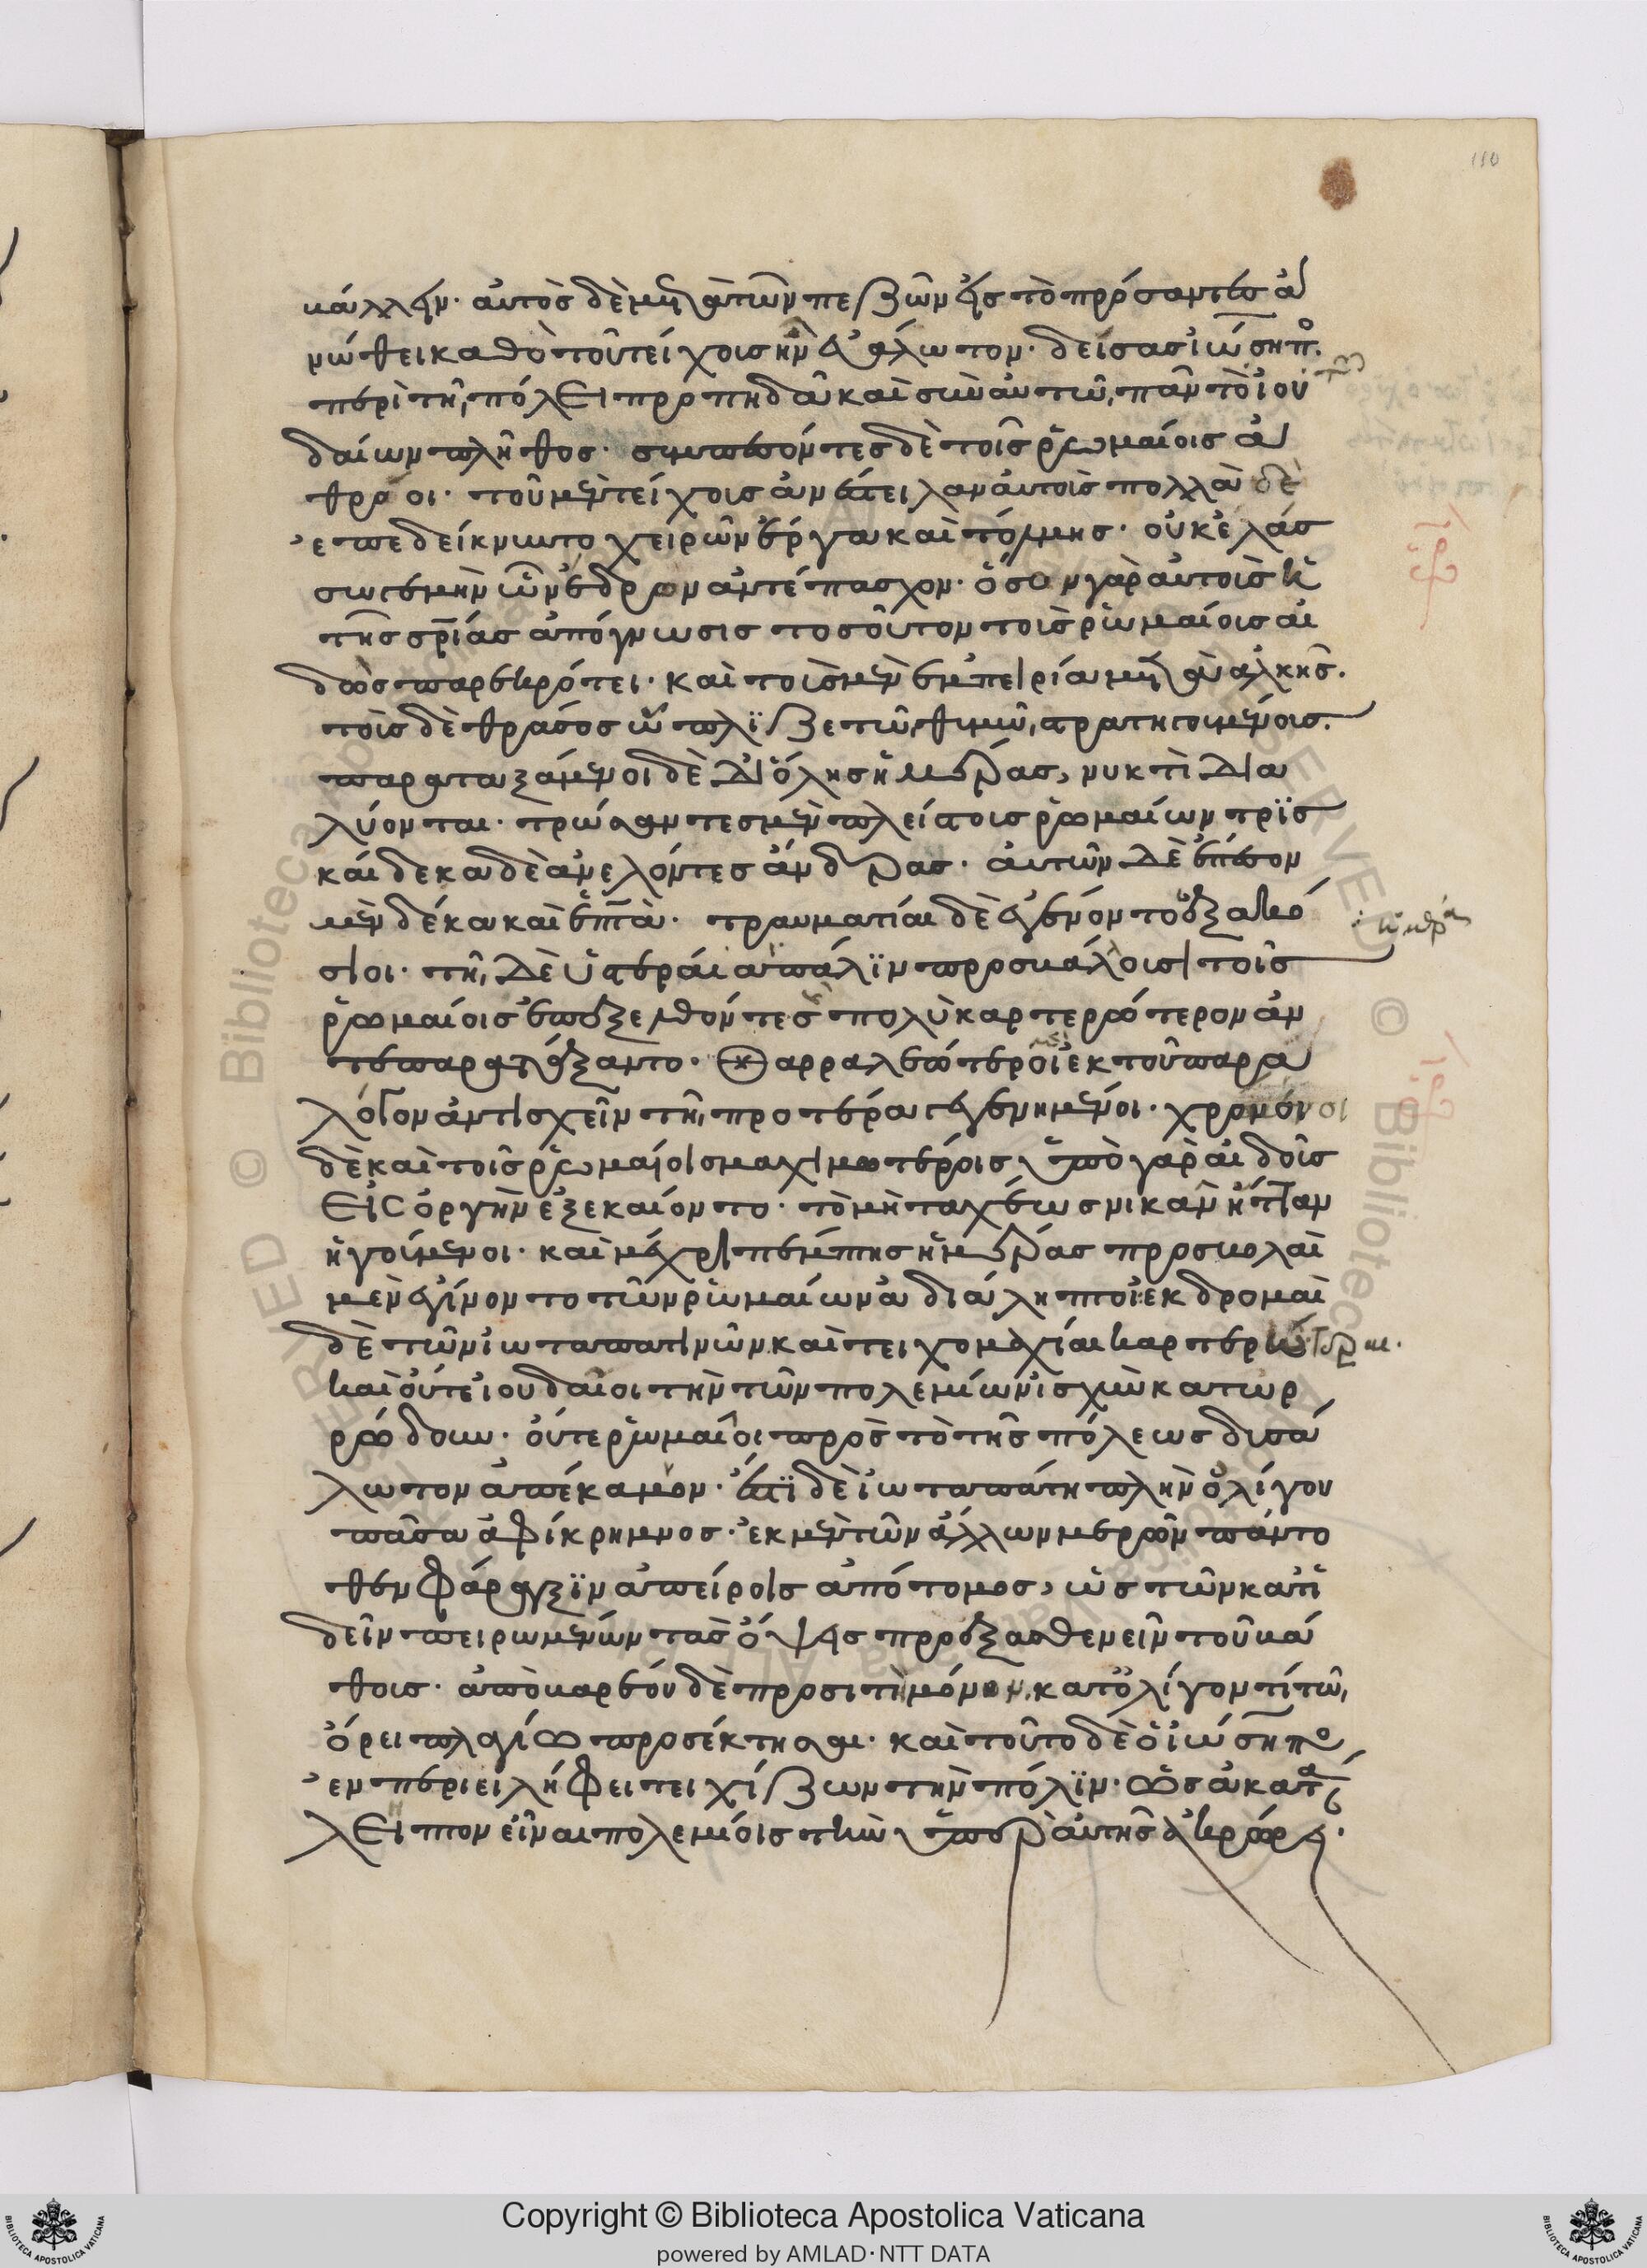 κωλύειν· αὐτὸς δὲ μετὰ τῶν πεζῶν εἰς τὸ πρόσαντες ἀ
νώθει καθὸ τοῦ τείχους ἦν εὐάλωτον· δείσας ἰώσηπο
περὶ τῆ πόλει προπηδᾶ καὶ σὺν αὐτῶ πᾶν τὸ ἰου
δαίων πλῆθος· συμπεσόντες δὲ τοῖς ῥωμαίοις ἀ
θρόοι· τοῦ μὲν τείχους ἀνέστειλαν αὐτοὺς πολλὰ δὲ
ἐπεδείκνυντο χειρῶν ἔργα καὶ τόλμης· οὐκ ἔλασ
σω γε μὴν ὧν ἔδρων ἀντέπασχον· ὅσον γὰρ αὐτοὺς ἡ
τῆς σρίας ἀπόγνωσις τοσοῦτον τοὺς ῥωμαίοις αἰ
δὼς παρεκρότει· καὶ τοὺς μὲν ἐμπειρία μετὰ ἀλκῆς.
τοὺς δὲ θράσος ὥπλιζε τῶ θυμῶ στρατηγουμένοις.
παραταξάμενοι δὲ δι' ὅλης ἡμέρας, νυκτὶ δια
λύονται· τρώσαντες μὲν πλείστους ῥωμαίων τρϊς
καίδεκα δὲ ἀνελόντες ἄνδρας· αὐτῶν δὲ ἔπεσον
μὲν δέκα καὶ ἑπτὰ· τραυματίαι δὲ ἐγένοντο ἑξακό
σιοι· τῆ δὲ ὑστεραίαι πάλϊν προσβάλουσι τοῖς
ῥωμαίοις ἐπεξελθόντες πολὺ καρτερώτερον ἀν
τεπαρετάξαντο· θαρραλεώτεροι ἐκ τοῦ παρὰ
λόγον ἀντισχεῖν τῆ προτέρα γεγενημένοι· χρώμενοι
δὲ καὶ τοῖς ῥωμαίοις μαχιμωτέροις ὑπὸ γὰρ αἰδοῦς
εἰς ὀργὴν ἐξεκαίοντο· τὸ μὴ ταχέως νικᾶν ἧτταν
ἡγούμενοι· καὶ μέχρι πέμπτης ἡμέρας προσβολαὶ
μὲν ἐγίνοντο τῶν ῥωμαίων ἀδιάληπτοι ἐκδρομαὶ
δὲ τῶν ἰωταπατηνῶν καὶ τειχομαχίαι καρτερώτεραι.
καὶ οὔτε ἰουδαῖοι τὴν τῶν πολεμίων ἰσχὺν κατωρ
ρώδουν· οὔτε ῥωμαῖοι πρὸς τὸ τῆς πόλεως δυσά
λωτον ἀπέκαμον· ἔστϊ δὲ ἰωταπάτη πλὴν ὀλίγου
πᾶσα ἀφίκρημνος· ἐκ μὲν τῶν ἄλλων μερῶν πάντο
θεν φάραγξϊν ἀπείροις ἀπότομος, ὡς τῶν κατϊ
δεῖν πειρωμένων τὰς ὄψεις προεξασθενεῖν τοῦ βά
θους· ἀπὸ βορέου δὲ προσιτὴ μόνον, καθ' ὀλίγον τί τῶ
ὄρει πλαγίω προσέκτησται· καὶ τοῦτο δὲ ὁ ἰώσηπο
ἐνπεριειλήφει τειχίζων τὴν πόλϊν· ὡς ἀκατά
λειπτον εἶναι πολεμίοις τὴν ὑπὲρ αὐτῆς ἀκρώρειαν.